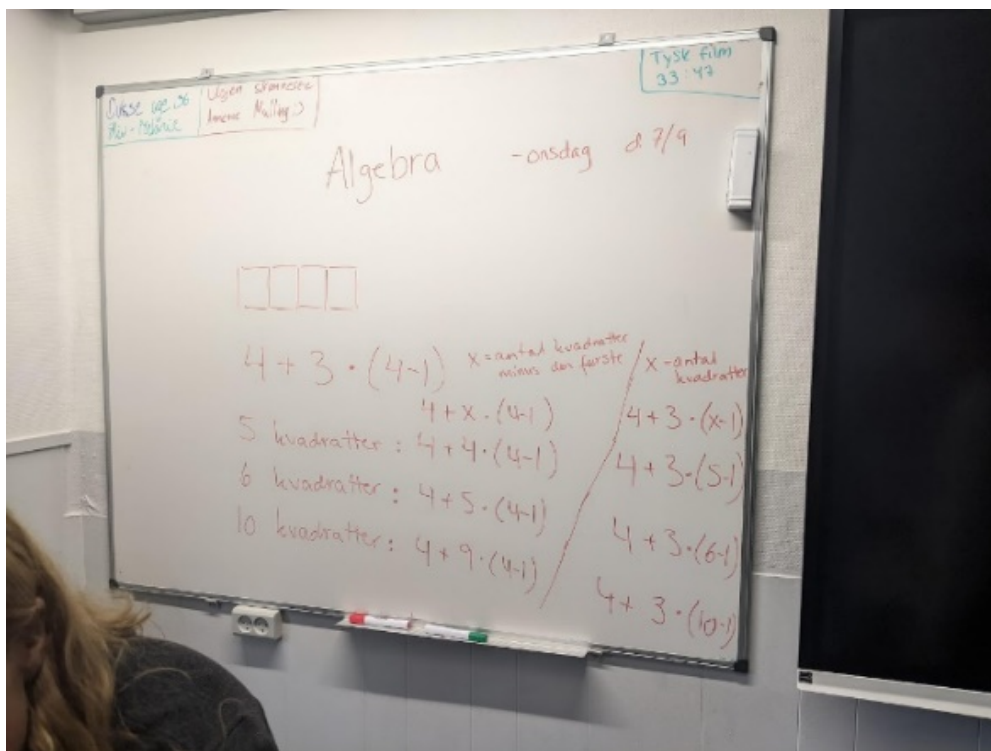 Dukse uge 36
Ugen
Tysk film
33:47
Algebra -onsdag d 7/9
4 + 3 · (4-1)
x = antal kvadratter
minus den første
4 + x · (4-1)
5 kvadratter: 4 + 4 · (4-1)
6 kvadratter: 4 + 5 · (4-1)
10 kvadratter: 4 + 9 · (4-1)
x - antal
kvadratter
4 + 3 · (x-1)
4 + 3 · (5-1)
4 + 3 · (6-1)
4 + 3 · (10-1)